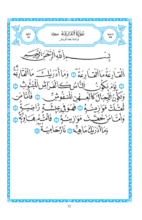 سُورَةُ الْقَارِعَةِ
بِسْمِ اللَّهِ الرَّحْمَٰنِ الرَّحِيمِ
الْقَارِعَةُ مَا الْقَارِعَةُ وَمَا أَدْرَاكَ مَا الْقَارِعَةُ
يَوْمَ يَكُونُ النَّاسُ كَالْفَرَاشِ الْمَبْثُوثِ
وَتَكُونُ الْجِبَالُ كَالْعِهْنِ الْمَنفُوشِ فَأَمَّا مَن
ثَقُلَتْ مَوَازِينُهُ فَهُوَ فِي عِيشَةٍ رَّاضِيَةٍ
وَأَمَّا مَنْ خَفَّتْ مَوَازِينُهُ فَأُمُّهُ هَاوِيَةٌ
وَمَا أَدْرَاكَ مَا هِيَهْ نَارٌ حَامِيَةٌ